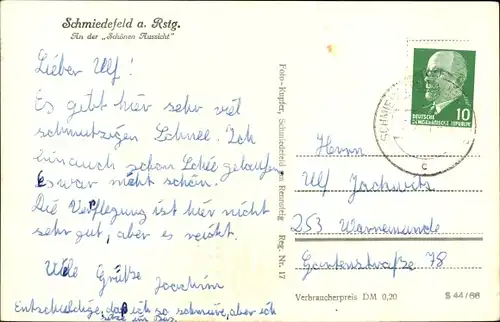 Schmiedefeld a. Rstg.
An der „Schönen Aussicht"
Lieber Ulf!
Es gibt hier sehr viel
schmutzigen Schnee. Ich
bin auch schon gelaufen
es war nicht schön.
Die Verpflegung ist hier nicht
sehr gut, aber es reicht.
Viele Grüße Joachim
Entschuldige, daß ich so schmiere, aber ich
Foto-Kupfer, Schmiedefeld am Rennsteig Reg. Nr. 17
DEUTSCHE
DEMOKRATISCHE REPUBLIK
10
SCHMIE
c
Herrn
Ulf
253 Warnemünde
Gartenstraße 78
Verbraucherpreis DM 0,20
S 44/66